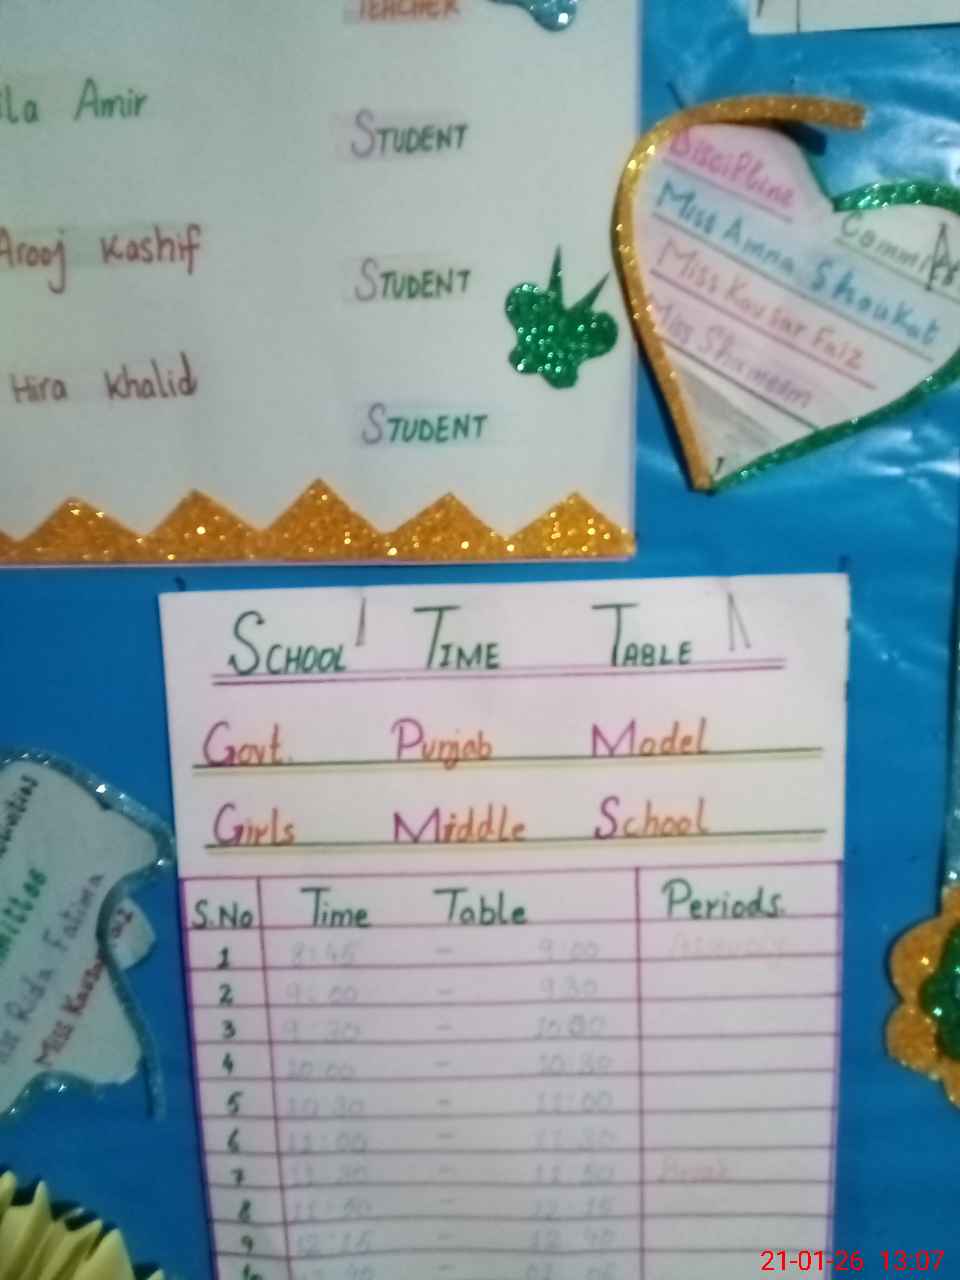 TEACHER
Amir STUDENT
Arooj Kashif STUDENT
Hira Khalid STUDENT
Discipline
Miss Amna Shoukat
Miss Kousar Faiz
Miss
SCHOOL TIME TABLE
Govt. Punjab Model
Girls Middle School
S.No Time Table Periods.
1 8:45 - 9:00
2 9:00 - 9:30
3 9:30
4 10:00 - 10:30
5 10:30 - 11:00
6 11:00 - 11:30
7 11:30 - 11:50 Break
8 11:50 - 12:15
9 12:15 - 12:40
Rida Fatima
Miss
21-01-26 13:07